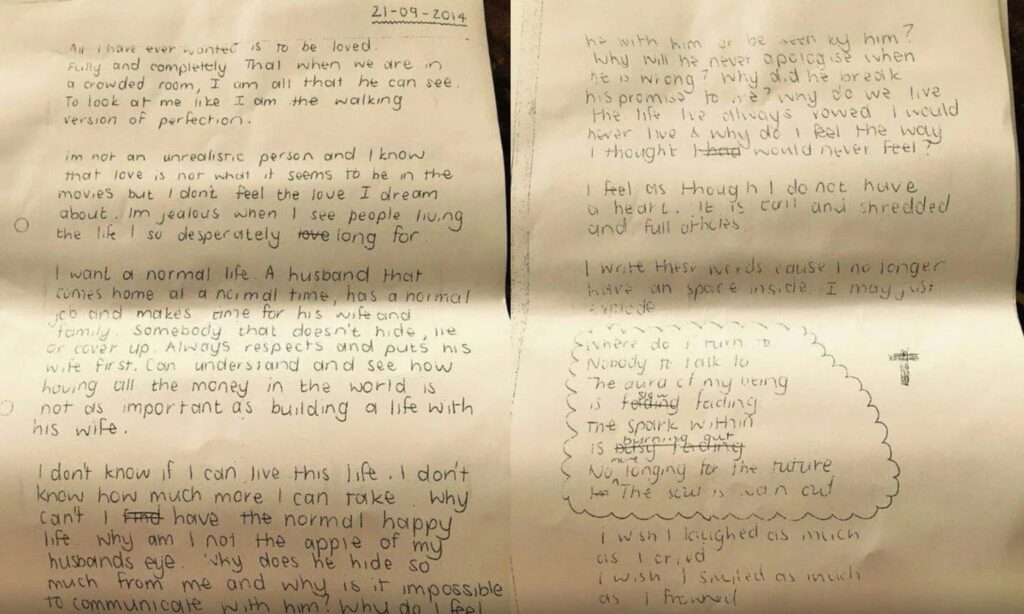 21-09-2014
All I have ever wanted is to be loved.
Fully and completely That when we are in
a crowded room, I am all that he can see.
To look at me like I am the walking
version of perfection.
im not an unrealistic person and I know
that love is not what it seems to be in the
movies but I don't feel the love I dream
about. Im jealous when I see people living
the life I so desperately love long for.
I want a normal life. A husband that
comes home at a normal time, has a normal
job and makes time for his wife and
family. Somebody that doesn't hide, lie
or cover up. Always respects and puts his
wife first. Can understand and see how
having all the money in the world is
not as important as building a life with
his wife.
I don't know if I can live this life. I don't
know how much more I can take. Why
can't I find have the normal happy
life. Why am I not the apple of my
husbands eye. Why does he hide so
much from me and why is it impossible
to communicate with him? Why do I feel
he with him or be seen by him?
Why will he never apologise when
he is wrong? Why did he break
his promise to me? Why do we live
the life I've always vowed I would
never live & why do I feel the way
I thought I had would never feel?
I feel as though I do not have
a heart. It is cut and shredded
and full of holes.
I write these words cause I no longer
have an space inside. I may just
explode
Where do I turn to
Nobody to talk to
The aura of my being
is fading slow fading
The spark within
is burning out
No more longing for the future
The soul is worn out
I wish I laughed as much
as I cried
I wish I smiled as much
as I frowned